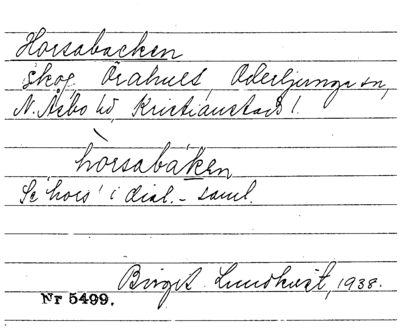 Horsabacken
skog, Örahult, Oderljunga sn,
N. Åsbo hd, Kristianstads l.
hòrsabáken
Se 'hors' i dial. - saml.
Birgit Lundkvist, 1938.
Nr 5499.